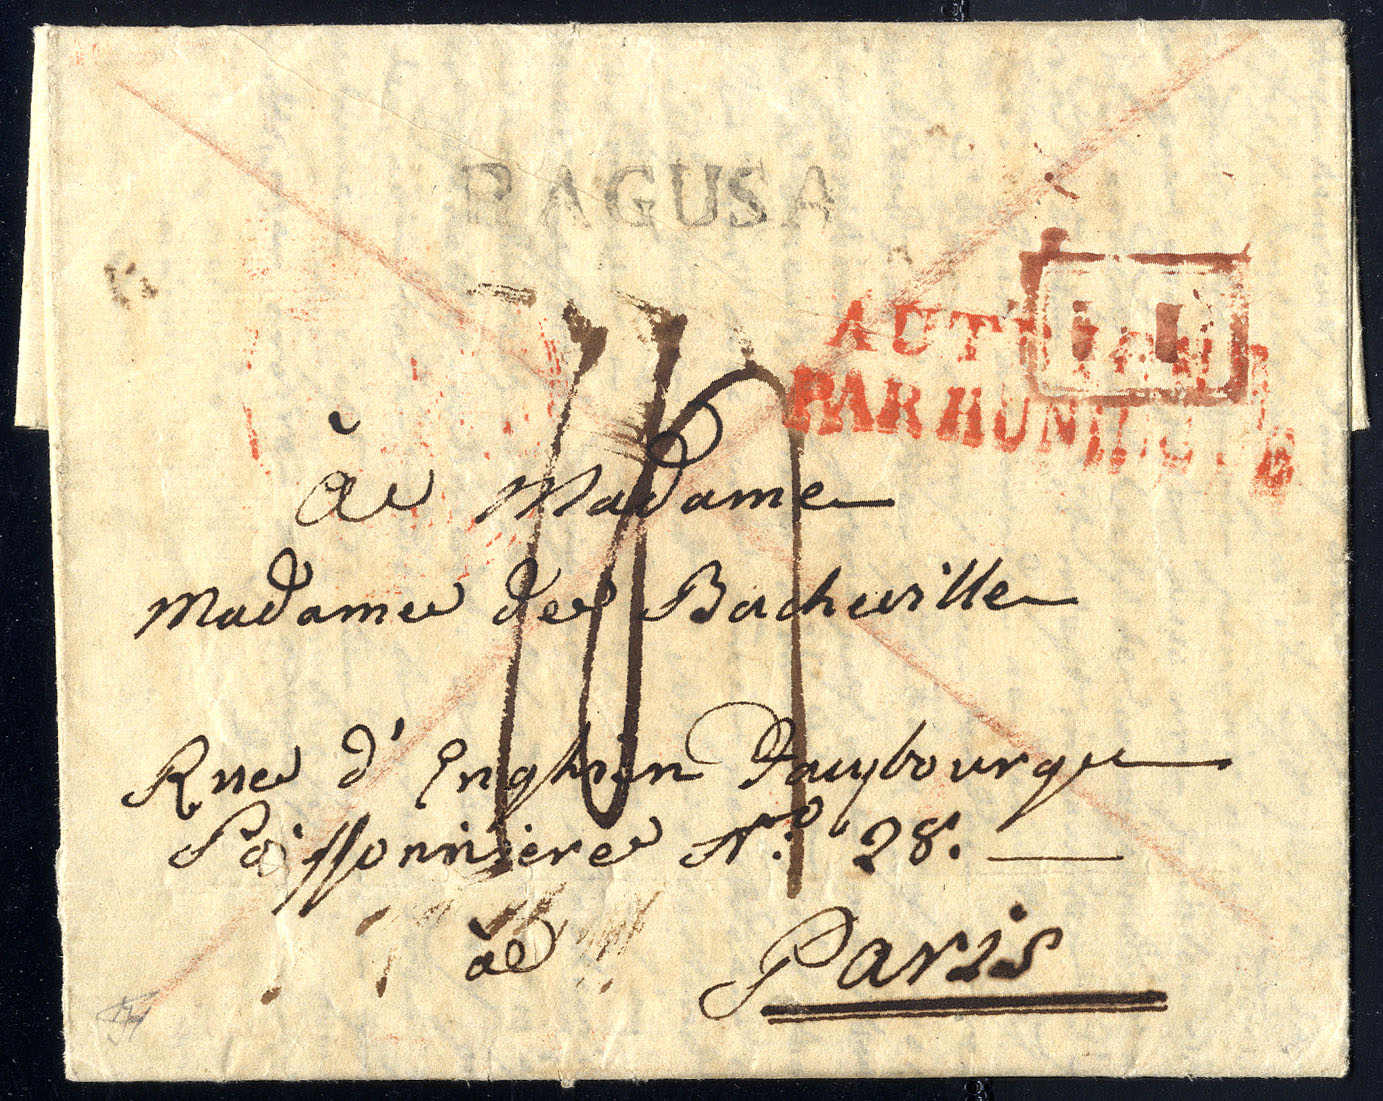 RAGUSA
AUTRICHE
PAR HUNINGUE
à Madame
Madame de Bacheville
Rue d'Enghien Fauybourgu
Poissonniere N.º 28.
à Paris